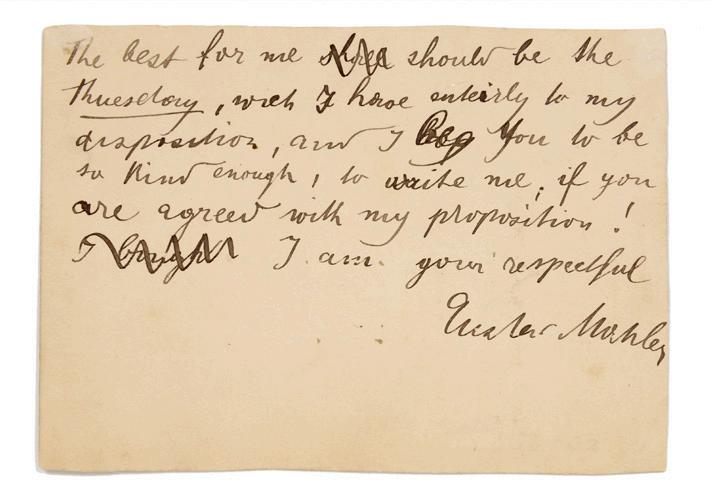 The best for me should be the
Thuesday, wich I have enteirly to my
disposition, and I beg You to be
so kind enough, to write me, if you
are agreed with my proposition!
I I am your respectful
Gustav Mahler